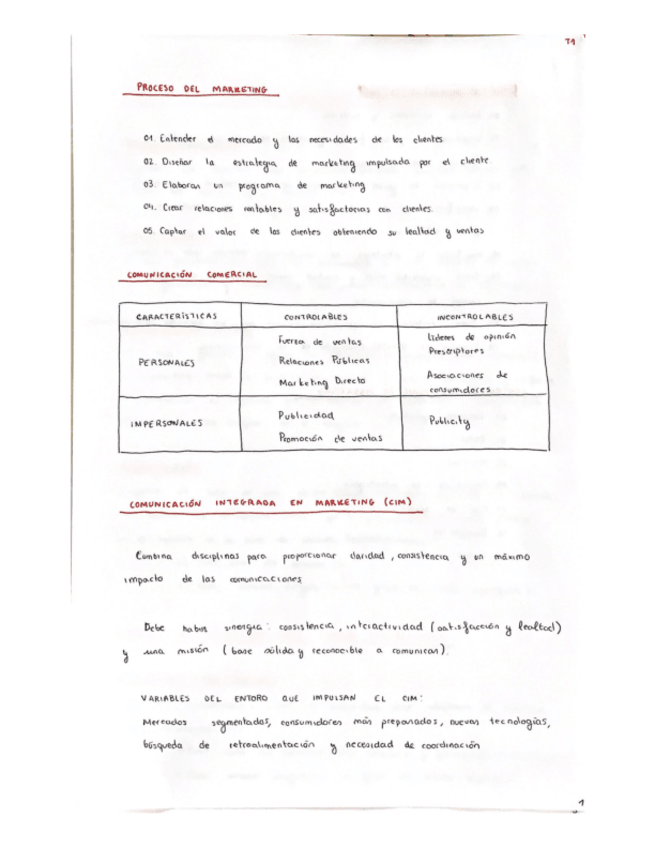 T1
PROCESO DEL MARKETING
01. Entender el mercado y las necesidades de los clientes
02. Diseñar la estrategia de marketing impulsada por el cliente
03. Elaborar un programa de marketing
04. Crear relaciones rentables y satisfactorias con clientes
05. Captar el valor de los clientes obteniendo su lealtad y ventas
COMUNICACIÓN COMERCIAL
CARACTERÍSTICAS CONTROLABLES INCONTROLABLES
PERSONALES
Fuerza de ventas
Relaciones Públicas
Marketing Directo
Líderes de opinión
Prescriptores
Asociaciones de
consumidores
IMPERSONALES
Publicidad
Promoción de ventas
Publicity
COMUNICACIÓN INTEGRADA EN MARKETING (CIM)
Combina disciplinas para proporcionar claridad, consistencia y un máximo
impacto de las comunicaciones
Debe haber sinergia: consistencia, interactividad (satisfacción y lealtad)
y una misión (base sólida y reconocible a comunicar)
VARIABLES DEL ENTORO QUE IMPULSAN EL CIM:
Mercados segmentados, consumidores más preparados, nuevas tecnologías,
búsqueda de retroalimentación y necesidad de coordinación
1